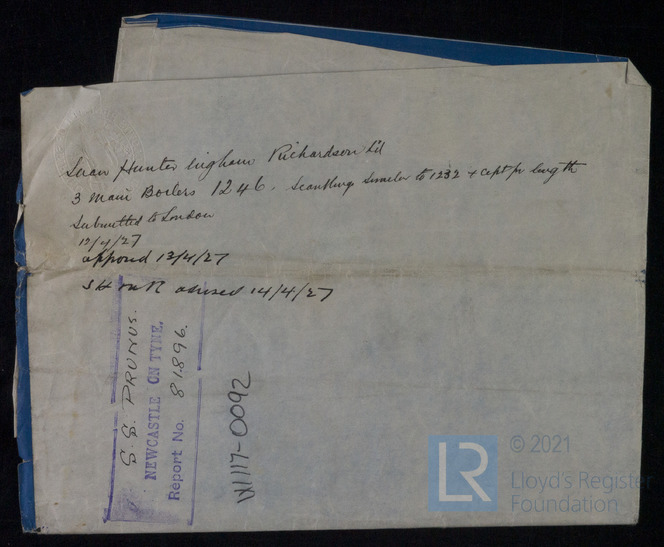 Swan Hunter Wigham Richardson Ltd
3 Main Boilers 1246. Scantlings similar to 1232 except for length
Submitted to London
12/4/27
approved 13/4/27
S H W R advised 14/4/27
S.S. PRUNUS.
NEWCASTLE ON TYNE.
Report No. 81896.
W1117-0092
LR
© 2021
Lloyd's Register
Foundation